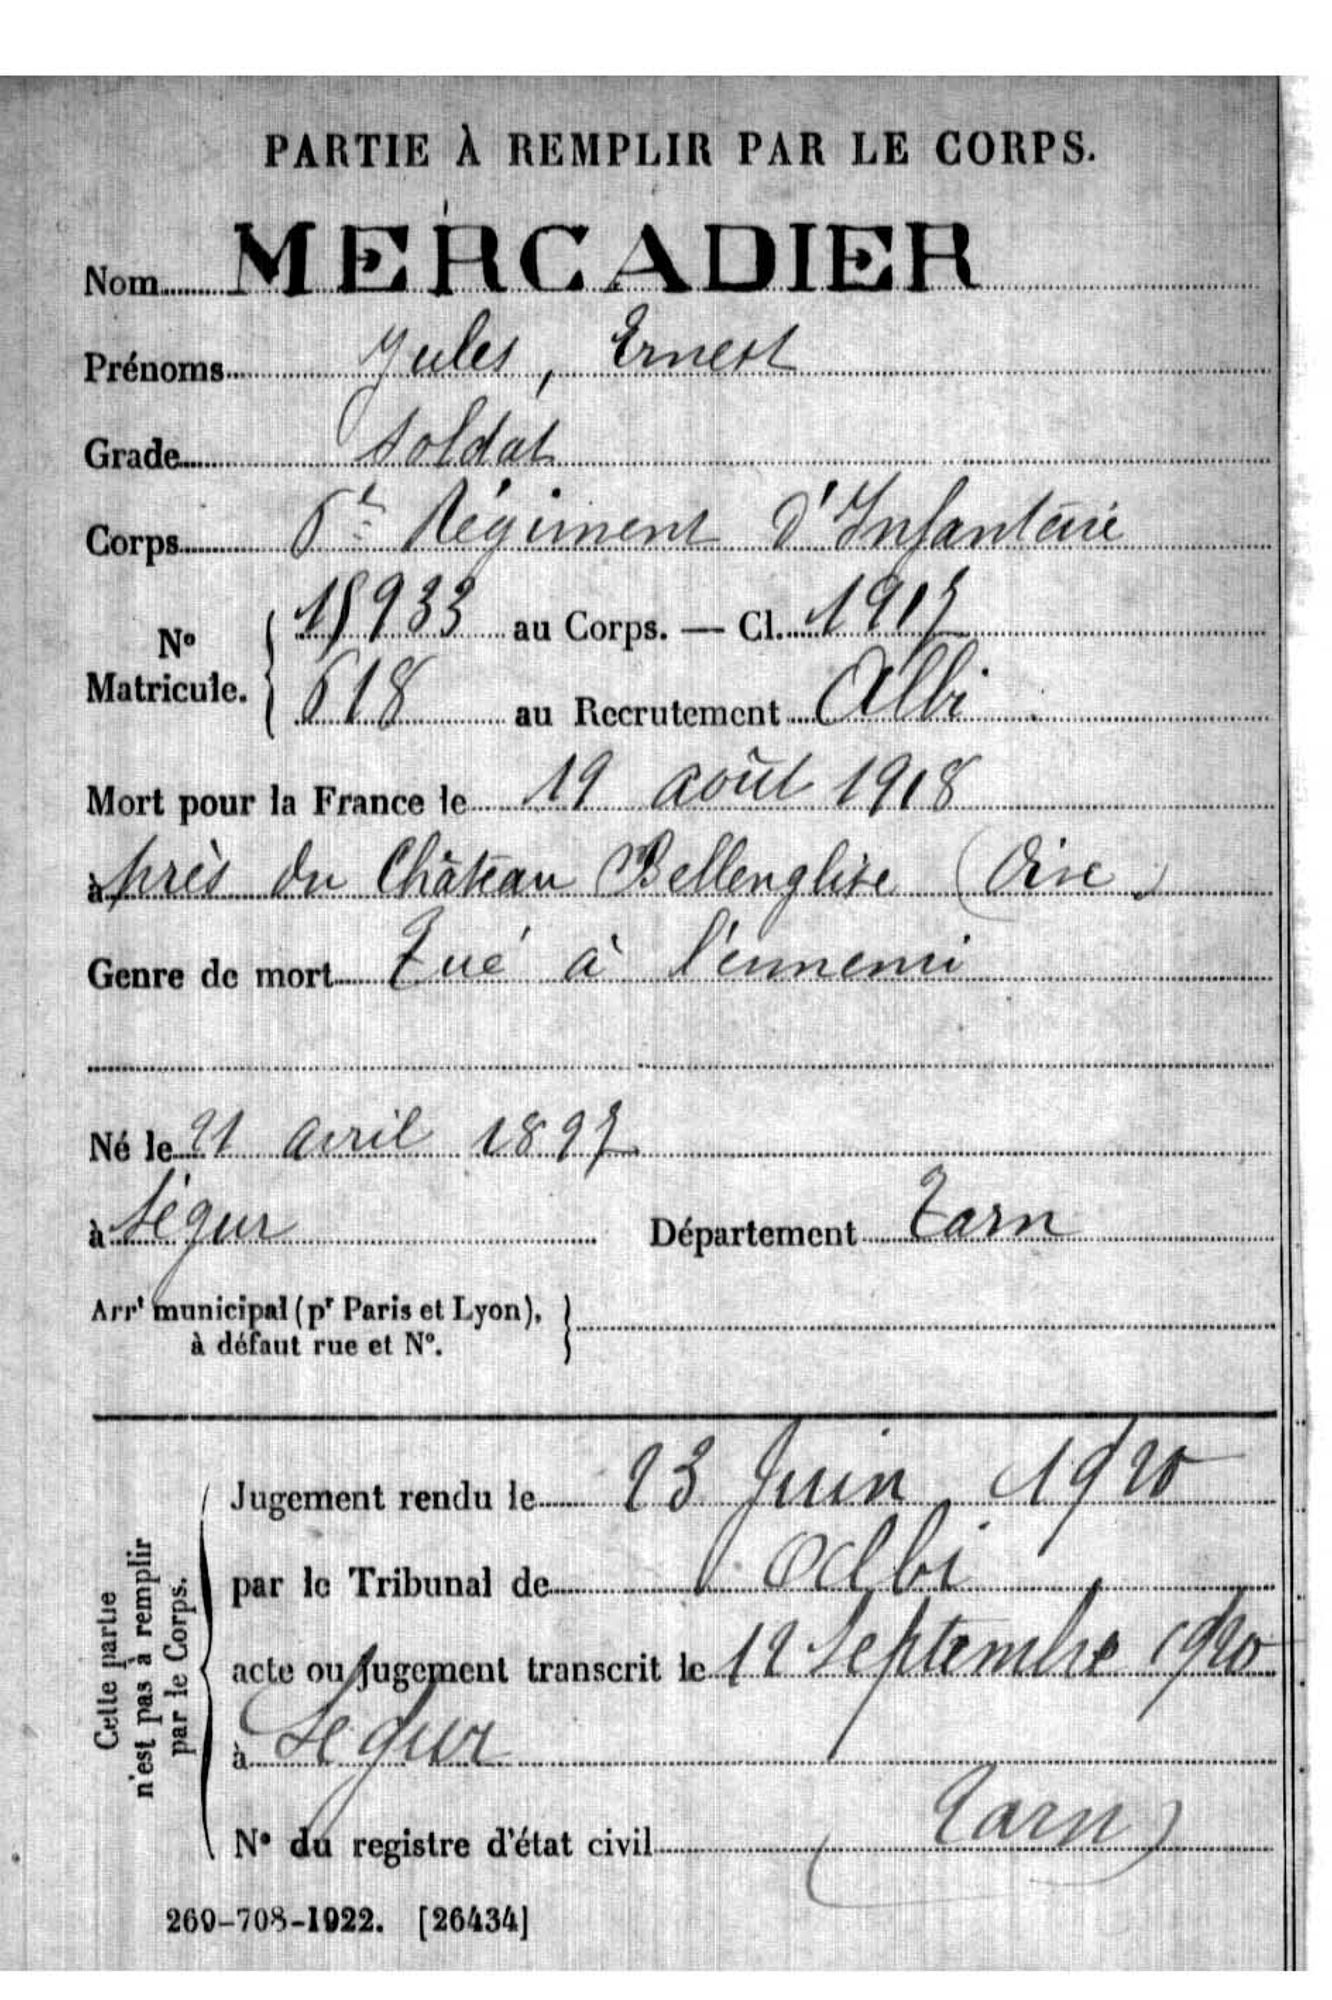 PARTIE À REMPLIR PAR LE CORPS.
Nom MERCADIER
Prénoms Jules, Ernest
Grade Soldat
Corps 6e Régiment d'Infanterie
No Matricule. { 15933 au Corps. — Cl. 1917
618 au Recrutement Albi
Mort pour la France le 19 août 1918
à près du Château Bellenglise (Oise)
Genre de mort Tué à l'ennemi
Né le 21 avril 1897
à Ségur Département Tarn
Arrt municipal (pr Paris et Lyon), }
à défaut rue et No.
Cette partie
n'est pas à remplir
par le Corps.
Jugement rendu le 23 Juin 1920
par le Tribunal de Albi
acte ou jugement transcrit le 12 Septembre 1920
à Ségur
No du registre d'état civil (Tarn)
269-708-1922. [26434]